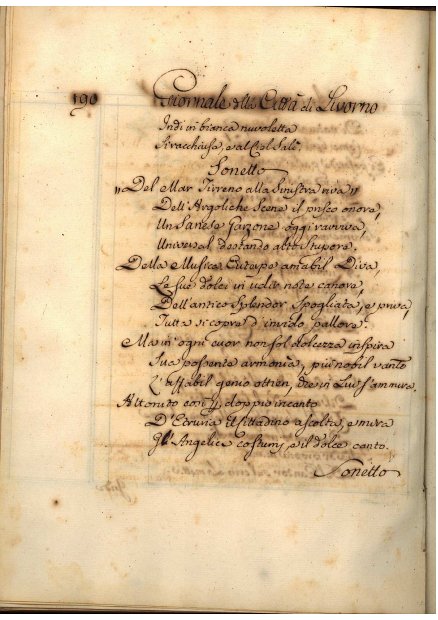 190
Giornale della Città di Livorno
Indi in bianca nuvoletta
Si racchiuse, e al Ciel salì.
Sonetto
"Del Mar Tirreno alla sinistra riva"
Dell'Argoliche Scene il prisco onore,
Un Sanese Garzone oggi ravviva,
Universal destando alto stupore.
Della Musica Euterpe amabil Diva,
Le sue dolci in udir note canore,
Dell'antico splendor spogliata, e priva,
Tutta si copre d'invido pallore.
Ma in ogni cuor non sol dolcezza inspira
Sua possente armonia, più nobil vanto
L'affabil genio ottien, che in Lui s'ammira.
Attonito con doppio incanto
D'Etruria il Cittadino ascolta, e mira
Gl'Angelici costumi, e il dolce canto.
Sonetto